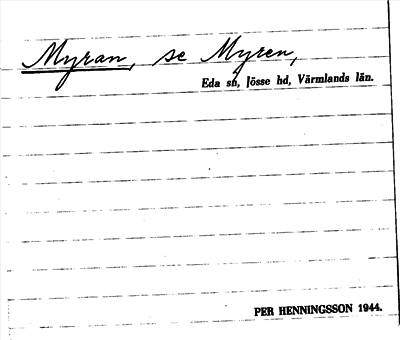 Myran, se Myren,
Eda sn, Jösse hd, Värmlands län.
PER HENNINGSSON 1944.